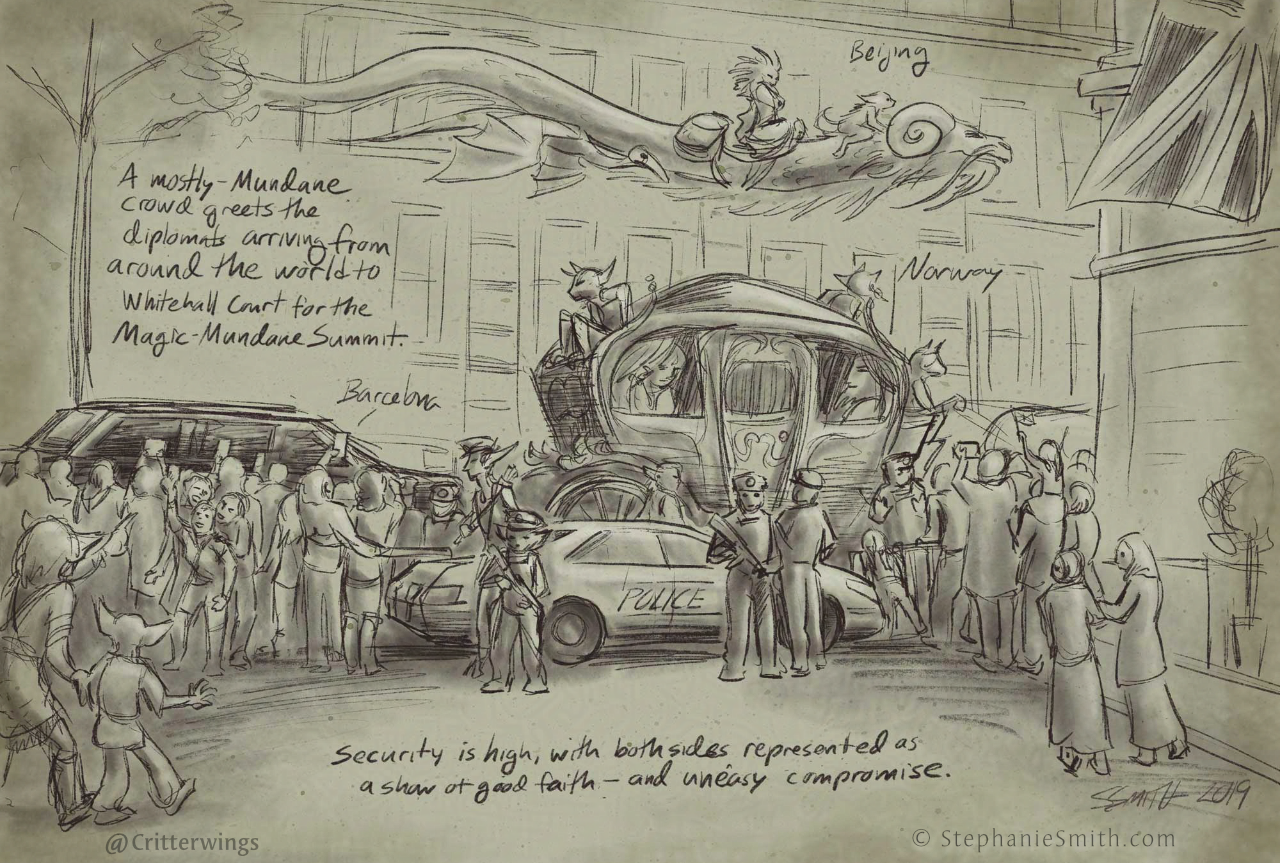 Beijing
A mostly-Mundane
crowd greets the
diplomats arriving from
around the world to
Whitehall Court for the
Magic-Mundane Summit.
Norway
Barcelona
POLICE
Security is high, with both sides represented as
a show of good faith – and uneasy compromise.
SSMITH 2019
@Critterwings
© StephanieSmith.com